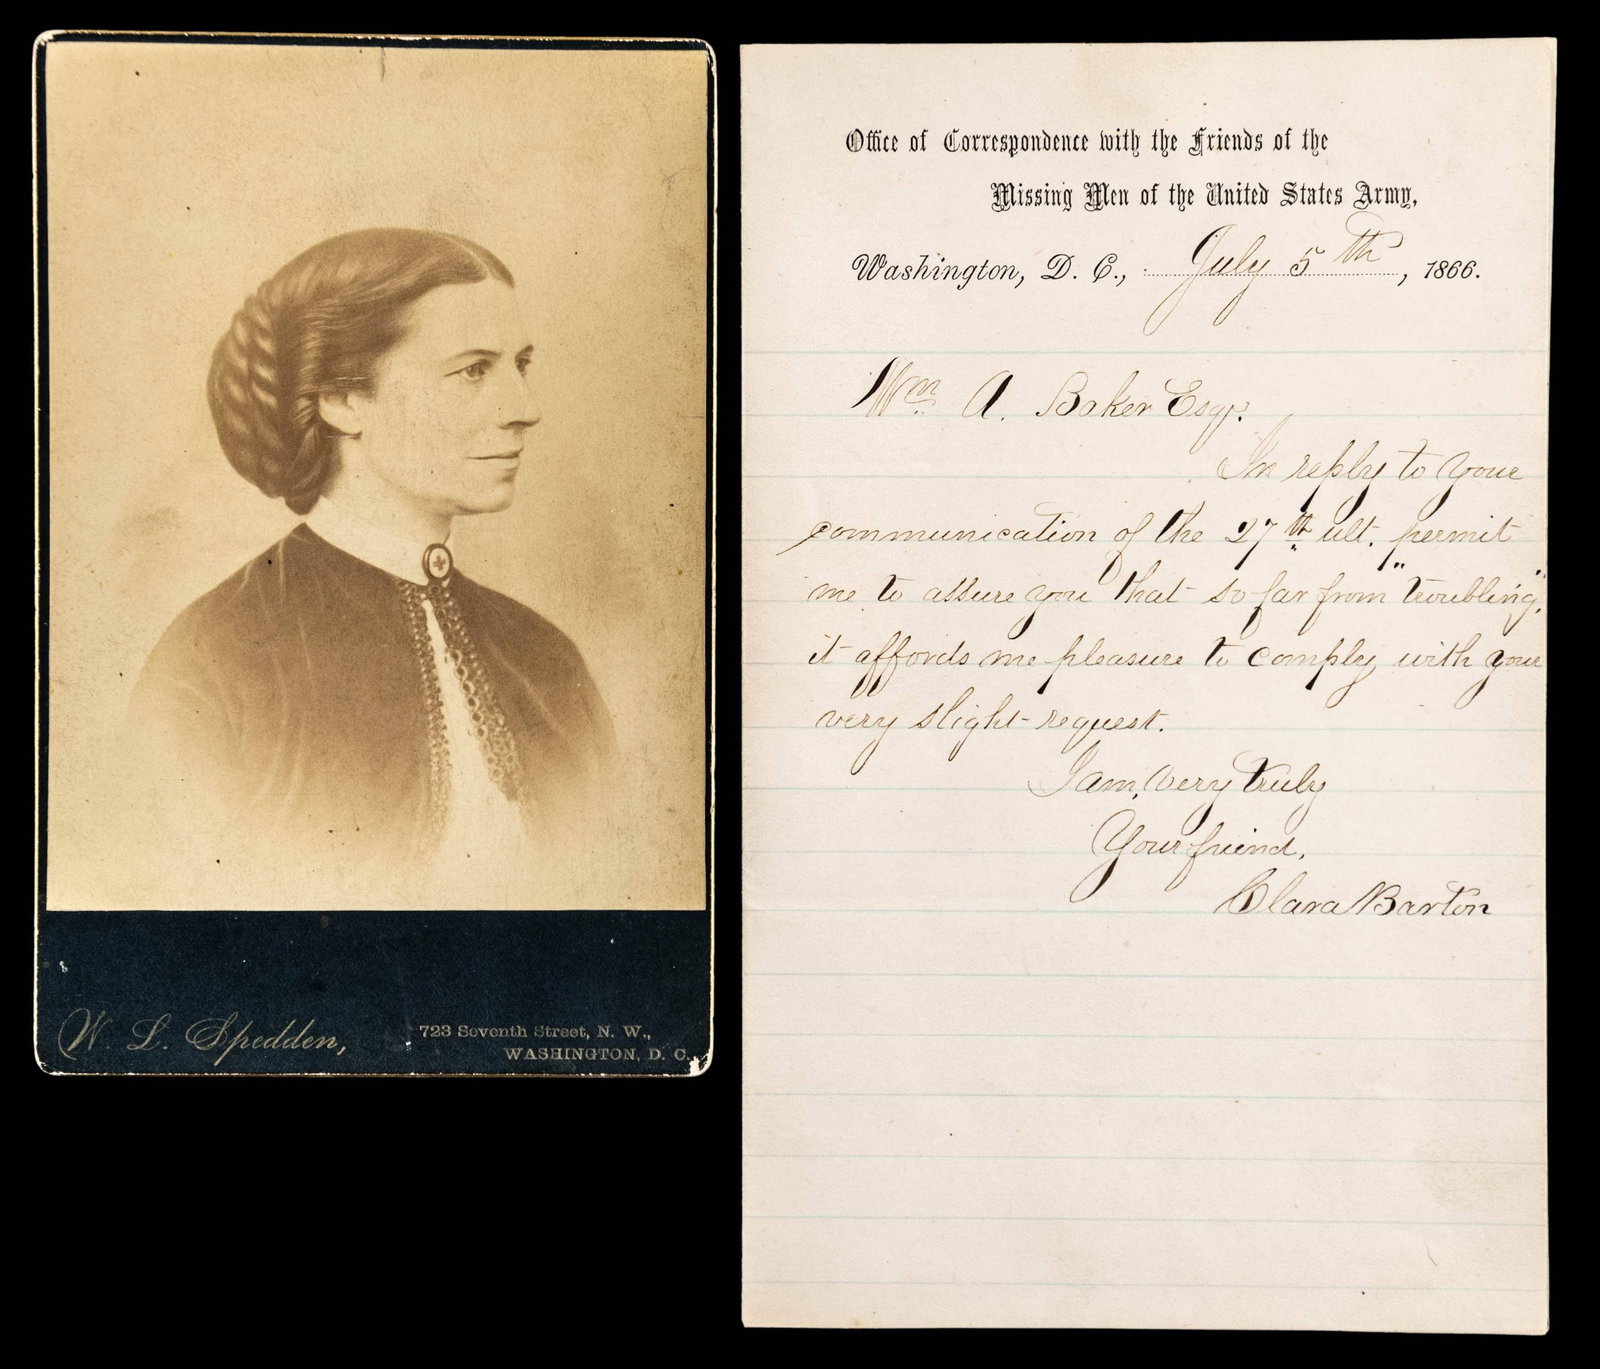 W. L. Spedden,
723 Seventh Street, N. W.,
WASHINGTON, D. C.
Office of Correspondence with the Friends of the
Missing Men of the United States Army,
Washington, D. C., July 5th, 1866.
Wm A. Baker Esqr.
In reply to your
communication of the 27th ult. permit
me to assure you that so far from "troubling",
it affords me pleasure to comply with your
very slight request.
I am, very truly
Your friend,
Clara Barton